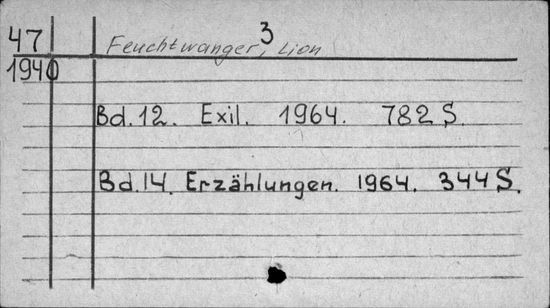 3
47 Feuchtwanger, Lion
1940
Bd. 12. Exil. 1964. 782 S.
Bd. 14. Erzählungen. 1964. 344 S.